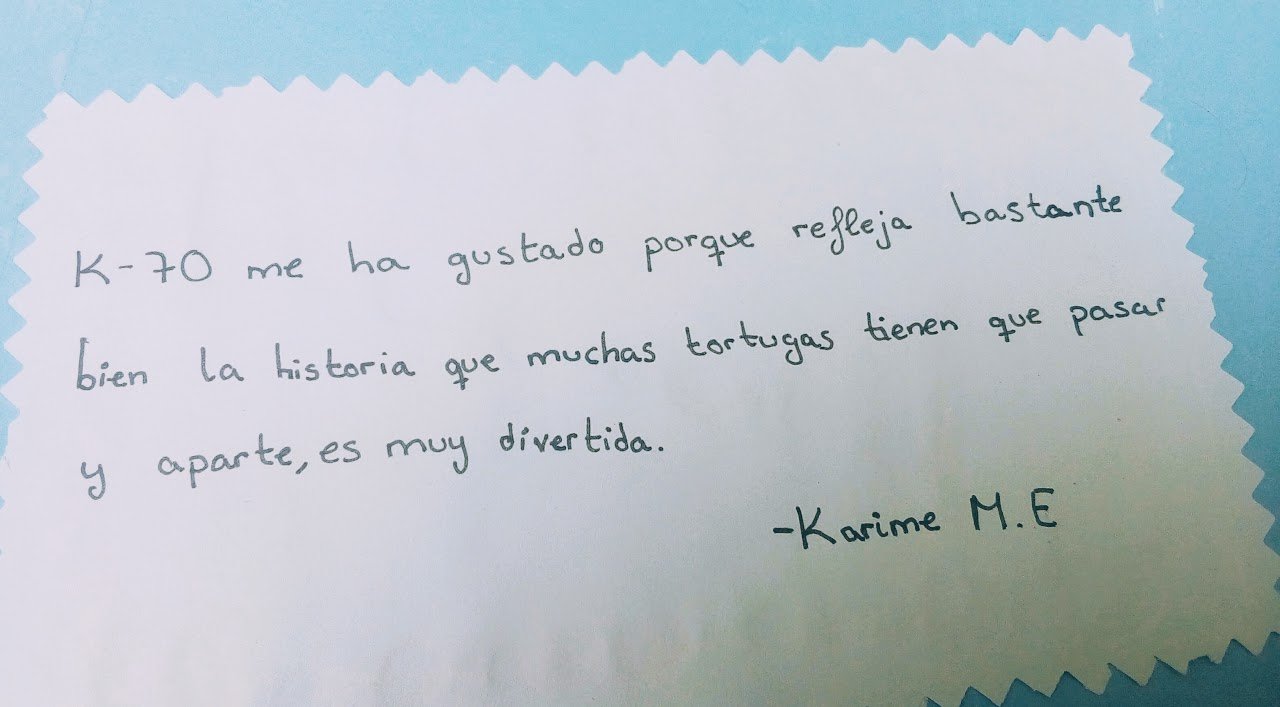 K-70 me ha gustado porque refleja bastante
bien la historia que muchas tortugas tienen que pasar
y aparte, es muy divertida.
-Karime M.E